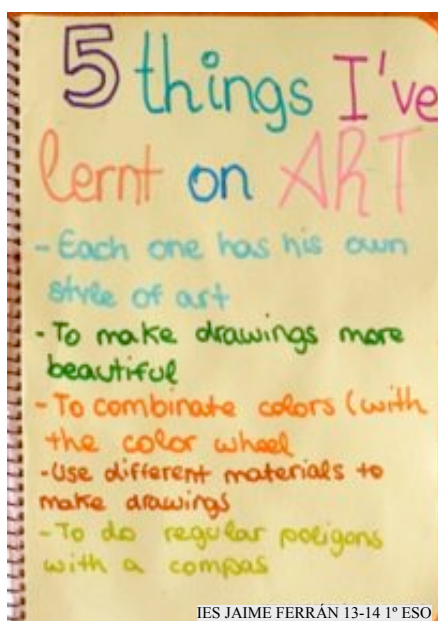 5 things I've
lernt on ART
- Each one has his own
style of art
- To make drawings more
beautiful
- To combinate colors (with
the color wheel
- Use different materials to
make drawings
- To do regular poligons
with a compas
IES JAIME FERRÁN 13-14 1º ESO